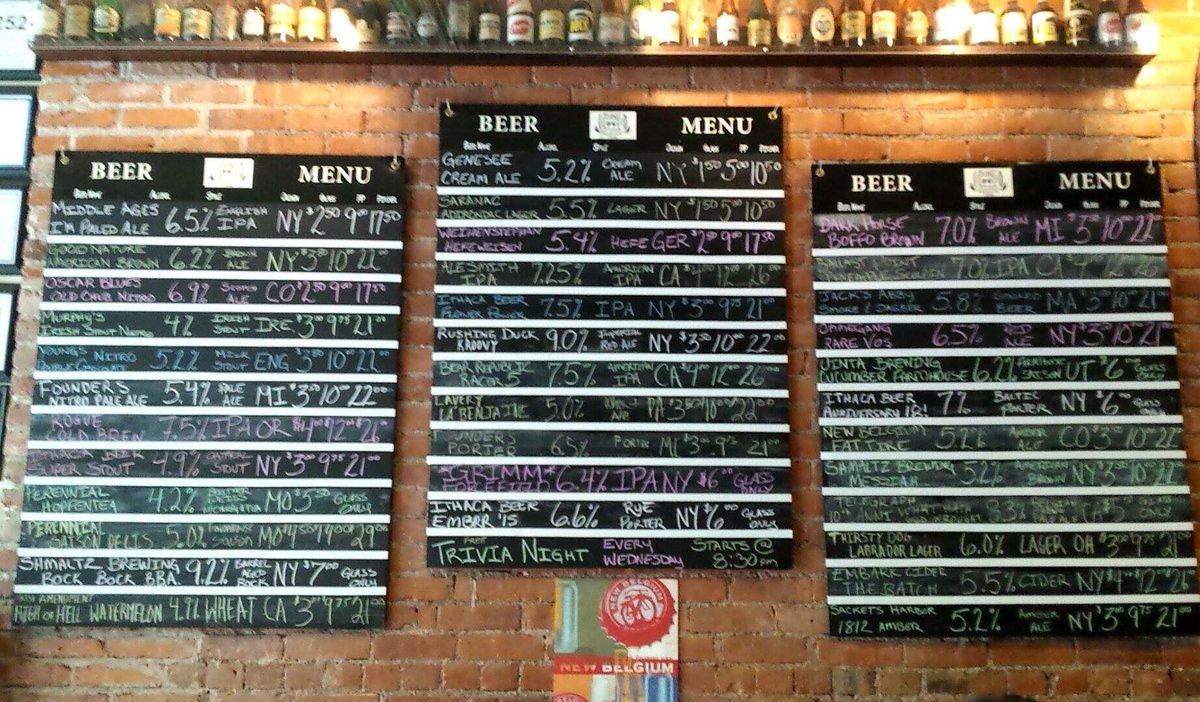 BEER MENU
BEER NAME ALCOHOL STYLE ORIGIN GLASS PP PITCHER
MIDDLE AGES
I'M PALED ALE 6.5% ENGLISH IPA NY $2.50 9.00 17.50
GOOD NATURE
AMERICAN BROWN 6.2% BROWN ALE NY $3.50 10.00 22.00
OSCAR BLUES
OLD CHUB NITRO 6.9% SCOTCH ALE CO $2.50 9.00 17.50
MURPHY'S
IRISH STOUT NITRO 4% IRISH STOUT IRE $3.00 9.75 21.00
YOUNG'S NITRO
DOUBLE CHOCOLATE 5.2% MILK STOUT ENG $3.50 10.00 22.00
FOUNDERS
NITRO PALE ALE 5.4% PALE ALE MI $3.50 10.00 22.00
ROGUE
COLD BREW 7.5% IPA OR $4.00 12.00 26.00
ITHACA BEER
SUPER STOUT 4.9% OATMEAL STOUT NY $3.00 9.75 21.00
PERENNIAL
HOPFENTEA 4.2% BERLINER WEISS MO $5.50 GLASS ONLY
PERENNIAL
SAISON DELIS 5.0% SAISON MO $4.50 14.00 29.00
SHMALTZ BREWING
BOCK BOCK BBA 9.2% BARREL AGED BOCK NY $7.00 GLASS ONLY
21ST AMENDMENT
HIGH OR HELL WATERMELON 4.9% WHEAT CA $3.00 9.75 21.00
BEER MENU
BEER NAME ALCOHOL STYLE ORIGIN GLASS PP PITCHER
GENESEE
CREAM ALE 5.2% CREAM ALE NY $1.50 5.00 10.50
SARANAC
ADIRONDAC LAGER 5.5% LAGER NY $1.50 5.00 10.50
WEIHENSTEPHAN
HEFEWEISEN 5.4% HEFE GER $2.50 9.00 17.50
ALESMITH
IPA 7.25% AMERICAN IPA CA $4.00 12.00 26.00
ITHACA BEER
FLOWER POWER 7.5% IPA NY $3.00 9.75 21.00
RUSHING DUCK
KROOVY 9.0% IMPERIAL RED ALE NY $3.50 10.00 22.00
BEAR REPUBLIC
RACER 5 7.5% AMERICAN IPA CA $4.00 12.00 26.00
LAVERY
5.0% PA $3.50 10.00 22.00
FOUNDERS
PORTER 6.5% PORTER MI $3.00 9.75 21.00
*GRIMM*
6.4% IPA NY $6.00 GLASS ONLY
ITHACA BEER
EMBRR '15 6.6% RYE PORTER NY $6.00 GLASS ONLY
FREE
TRIVIA NIGHT EVERY WEDNESDAY STARTS @ 8:30 PM
BEER MENU
BEER NAME ALCOHOL STYLE ORIGIN GLASS PP PITCHER
DARK HORSE
BOFFO BROWN 7.0% BROWN ALE MI $3.50 10.00 22.00
BALLAST POINT
PINEAPPLE SCULPIN 7.0% IPA CA $4.00 12.00 26.00
JACK'S ABBY
SMOKE & DAGGER 5.8% SMOKED BEER MA $3.50 10.00 21.00
OMMEGANG
RARE VOS 6.5% RED ALE NY $3.50 10.00 21.00
UINTA BREWING
CUCUMBER FARMHOUSE 6.2% FARMHOUSE SAISON UT $6.00 GLASS ONLY
ITHACA BEER
ANNIVERSARY 18! 7% BALTIC PORTER NY $6.00 GLASS ONLY
NEW BELGIUM
FAT TIRE 5.2% AMBER ALE CO $3.50 10.00 22.00
SHMALTZ BREWING
MESSIAH 5.2% AMERICAN BROWN NY $3.50 10.00 22.00
TELEGRAPH
CA GLASS ONLY
THIRSTY DOG
LABRADOR LAGER 6.0% LAGER OH $3.00 9.75 21.00
EMBARK CIDER
THE BATCH 5.5% CIDER NY $4.00 12.00 26.00
SACKETS HARBOR
1812 AMBER 5.2% AMBER ALE NY $3.00 9.75 21.00
NEW BELGIUM
NEW BELGIUM